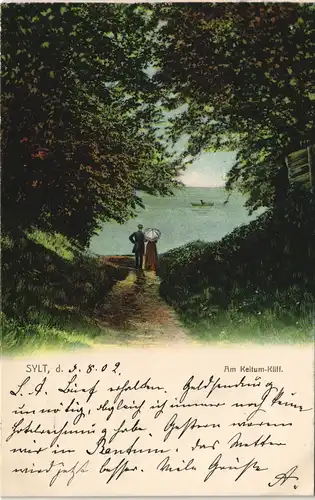 SYLT, d. 5.8.02.
Am Keitum-Kliff.
L. A. Brief erhalten. Geldsendung
unnötig, obgleich ich immer noch keine
Hotelrechnung habe. Gestern waren
wir in Rantum. das Wetter
wird jetzt besser. Viele Grüsse
A.